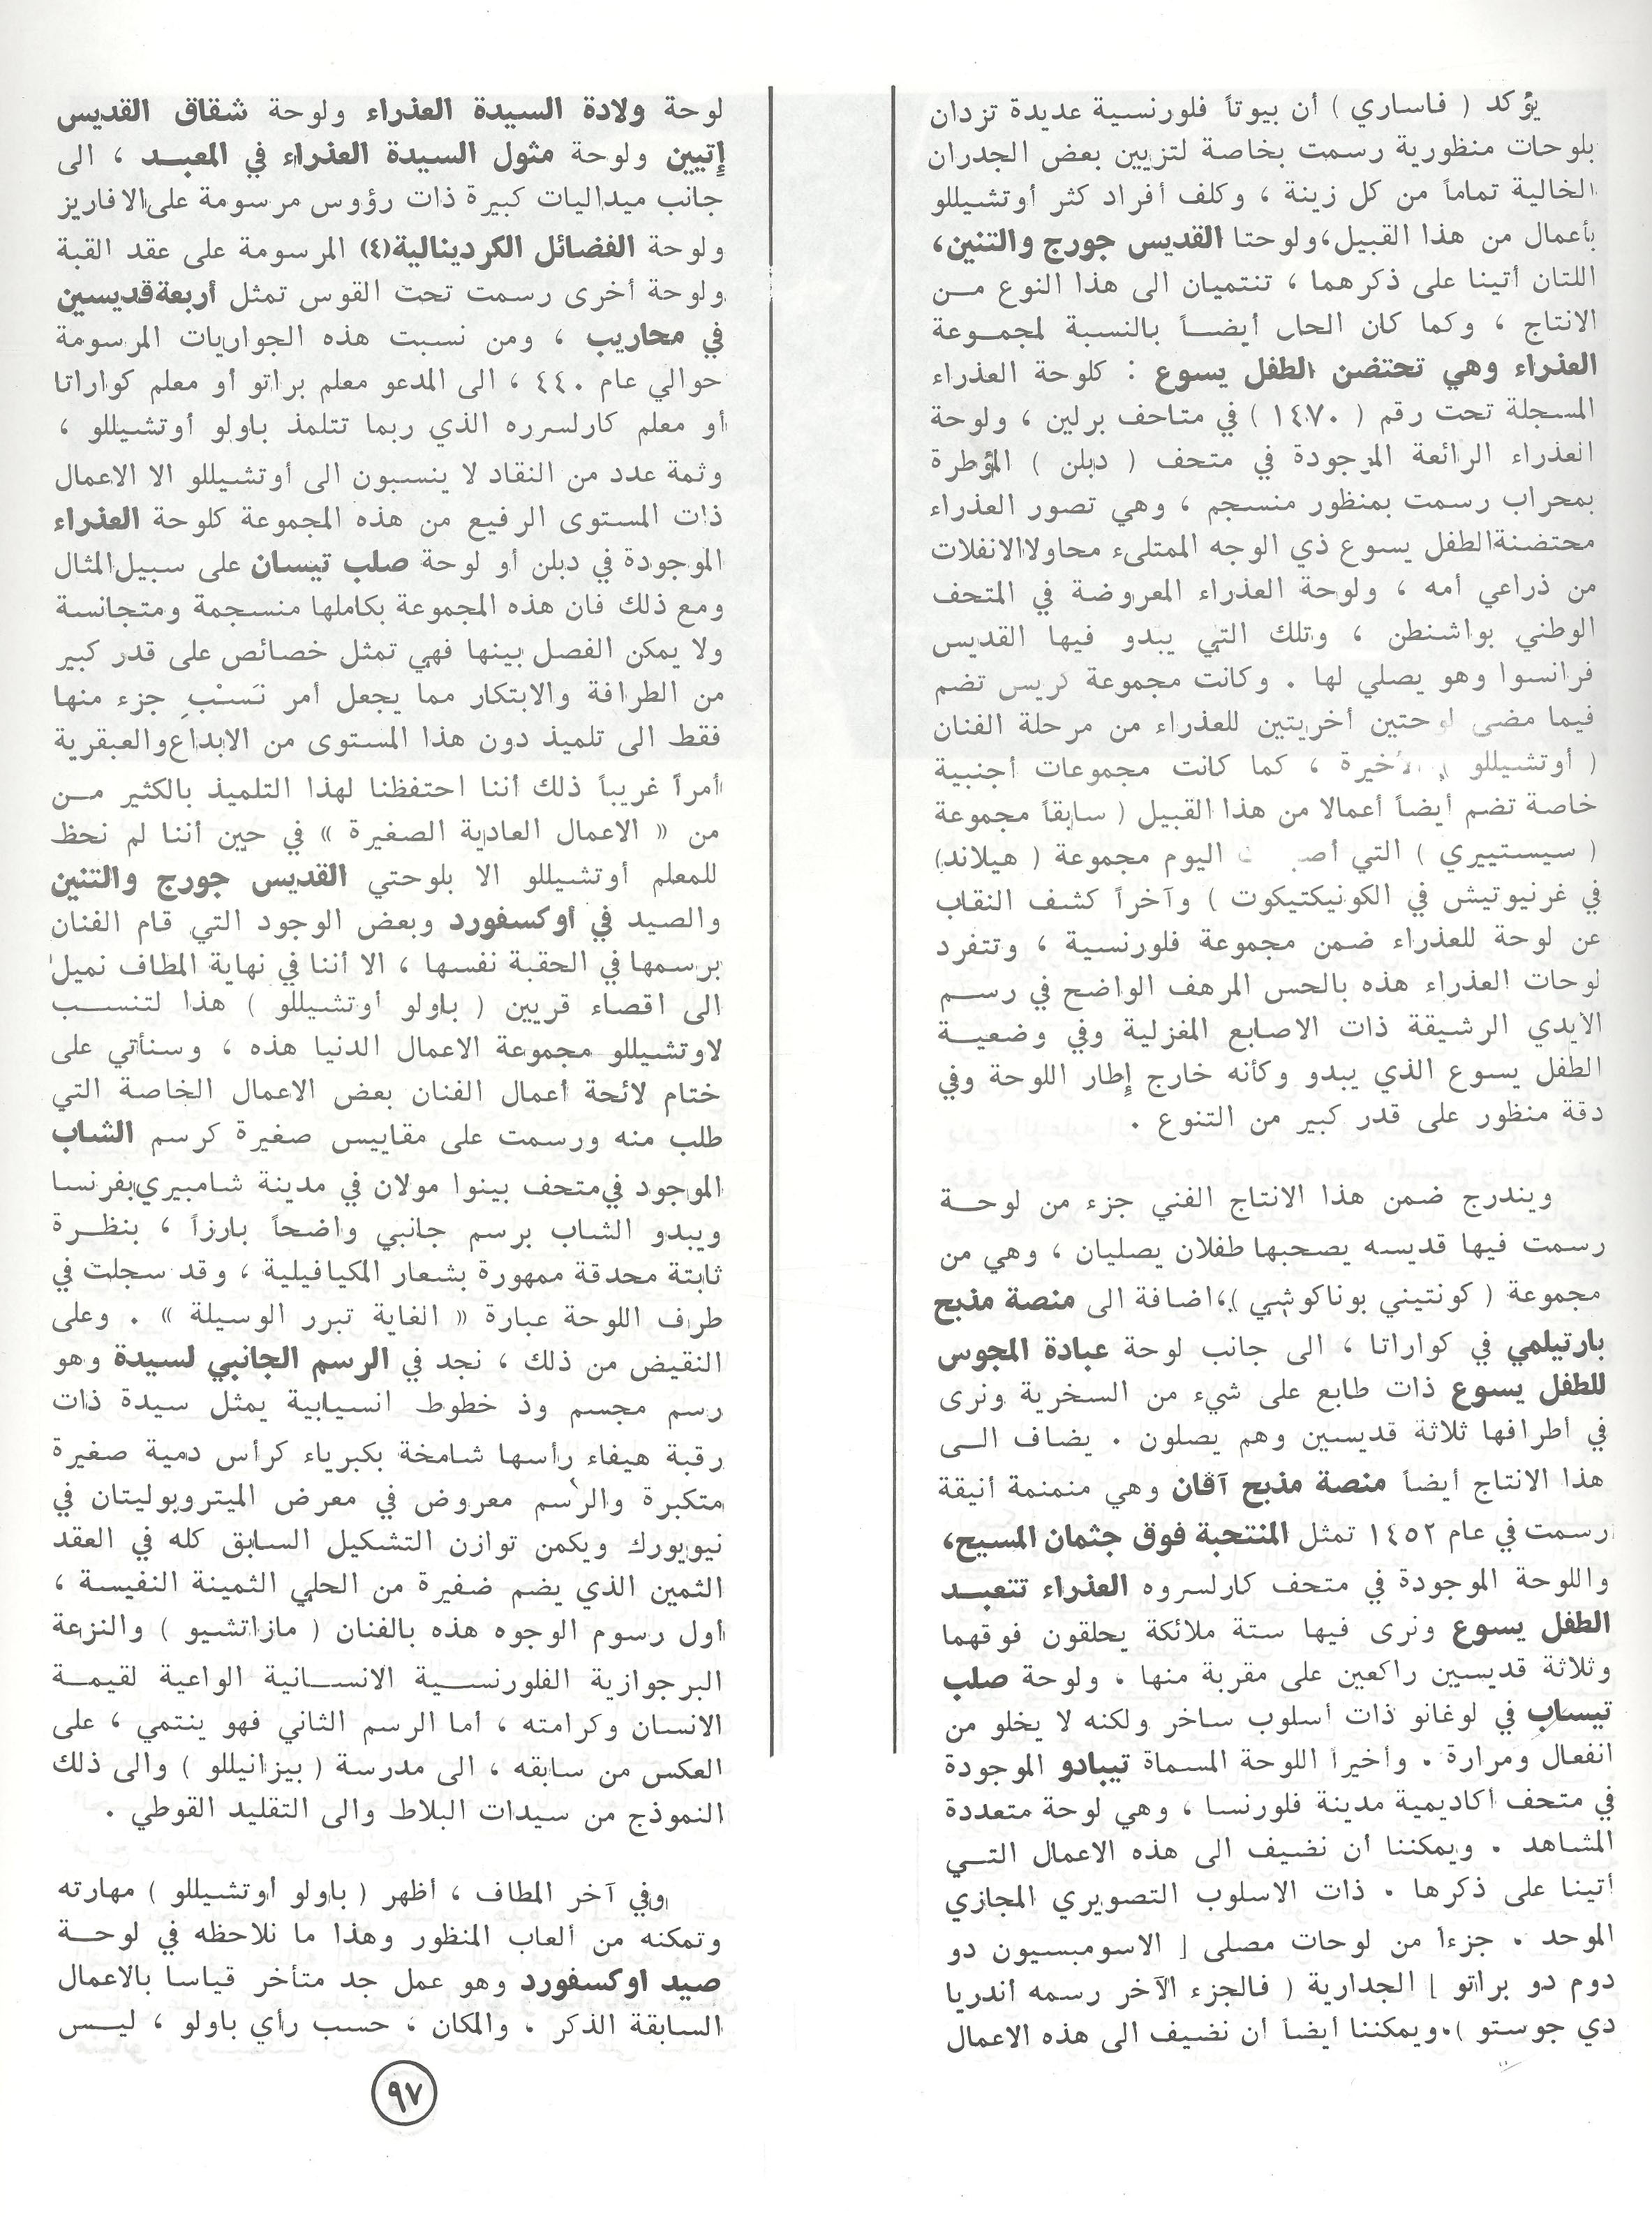 يؤكد ( فاساري ) أن بيوتاً فلورنسية عديدة تزدان
بلوحات منظورية رسمت بخاصة لتزيين بعض الجدران
الخالية تماماً من كل زينة ، وكلف أفراد كثر أوتشيللو
بأعمال من هذا القبيل،ولوحتا القديس جورج والتنين،
اللتان أتينا على ذكرهما ، تنتميان الى هذا النوع مـن
الانتاج ، وكما كان الحال أيضـاً بالنسبة لمجمـوعة
العذراء وهي تحتضن الطفل يسوع : كلوحة العذراء
المسجلة تحت رقم ( ١٤٧٠ ) في متاحف برلين ، ولوحة
العذراء الرائعة الموجودة في متحف ( دبلن ) المؤطرة
بمحراب رسمت بمنظور منسجم ، وهي تصور العذراء
محتضنة الطفل يسوع ذي الوجه الممتلىء محاولا الانفلات
من ذراعي أمه ، ولوحة العذراء المعروضة في المتحف
الوطني بواشنطن ، وتلك التي يبدو فيها القديس
فرانسوا وهو يصلي لها . وكانت مجموعة كريس تضم
فيما مضى لوحتين أخريتين للعذراء من مرحلة الفنان
( أوتشيللو ) الأخيرة ، كما كانت مجموعات أجنبية
خاصة تضم أيضاً أعمالا من هذا القبيل ( سابقاً مجموعة
( سيستييري ) التي اليوم مجموعة ( هيلاند)
في غرنيوتيش في الكونيكتيكوت ) وآخراً كشف النقاب
عن لوحة للعذراء ضمن مجموعة فلورنسية ، وتتفرد
لوحات العذراء هذه بالحس المرهف الواضح في رسـم
الايدي الرشيقة ذات الاصابع المغزلية وفي وضعيـة
الطفل يسوع الذي يبدو وكأنه خارج إطار اللوحة وفي
دقة منظور على قدر كبير من التنوع .
ويندرج ضمن هذا الانتاج الفني جزء من لوحـة
رسمت فيها قديسه يصحبها طفلان يصليان ، وهي من
مجموعة ( كونتيني بوناكوشي )،اضافة الى منصة مذبح
بارتيلمي في كواراتا ، الى جانب لوحة عبادة المجوس
للطفل يسوع ذات طابع على شيء من السخرية ونرى
في أطرافها ثلاثة قديسين وهم يصلون . يضاف الـى
هذا الانتاج أيضاً منصة مذبح آڤان وهي منمنمة أنيقة
رسمت في عام ١٤٥٢ تمثل المنتحبة فوق جثمان المسيح،
واللوحة الموجودة في متحف كارلسروه العذراء تتعبـد
الطفل يسوع ونرى فيها ستة ملائكة يحلقون فوقهما
وثلاثة قديسين راكعين على مقربة منها . ولوحة صلب
تيساب في لوغانو ذات أسلوب ساخر ولكنه لا يخلو من
انفعال ومرارة . وأخيراً اللوحة المسماة تيبادو الموجودة
في متحف أكاديمية مدينة فلورنسا ، وهي لوحة متعددة
المشاهد . ويمكننا أن نضيف الى هذه الاعمال التـي
أتينا على ذكرها . ذات الاسلوب التصويري المجازي
الموحد . جزءاً من لوحات مصلى [ الاسومبسيون دو
دوم دو براتو ] الجدارية ( فالجزء الآخر رسمه أندريا
دي جوستو ).ويمكننا أيضاً أن نضيف الى هذه الاعمال
لوحة ولادة السيدة العذراء ولوحة شقاق القديس
إتيين ولوحة مثول السيدة العذراء في المعبـد ، الى
جانب ميداليات كبيرة ذات رؤوس مرسومة على الافاريز
ولوحة الفضائل الكردينالية(٤) المرسومة على عقد القبة
ولوحة أخرى رسمت تحت القوس تمثل أربعة قديسين
في محاريب ، ومن نسبت هذه الجواريات المرسومة
حوالي عام ٤٤٠ ، الى المدعو معلم براتو أو معلم كواراتا
أو معلم كارلسرره الذي ربما تتلمذ باولو أوتشيللو ،
وثمة عدد من النقاد لا ينسبون الى أوتشيللو الا الاعمال
ذات المستوى الرفيع من هذه المجموعة كلوحة العذراء
الموجودة في دبلن أو لوحة صلب تيسان على سبيل المثال
ومع ذلك فان هذه المجموعة بكاملها منسجمة ومتجانسة
ولا يمكن الفصل بينها فهي تمثل خصائص على قدر كبير
من الطرافة والابتكار مما يجعل أمر نَسْبِ جزء منها
فقط الى تلميذ دون هذا المستوى من الابداع والعبقرية
أمراً غريباً ذلك أننا احتفظنا لهذا التلميذ بالكثير مـن
من « الاعمال العادية الصغيرة » في حين أننا لم نحظ
للمعلم أوتشيللو الا بلوحتي القديس جورج والتنين
والصيد في أوكسفورد وبعض الوجود التي قام الفنان
برسمها في الحقبة نفسها ، الا أننا في نهاية المطاف نميل
الى اقصاء قريين ( باولو أوتشيللو ) هذا لتنسـب
لاوتشيللو مجموعة الاعمال الدنيا هذه ، وسنأتي على
ختام لائحة أعمال الفنان بعض الاعمال الخاصة التي
طلب منه ورسمت على مقاييس صغيرة كرسم الشاب
الموجود في متحف بينوا مولان في مدينة شامبيري بفرنسا
ويبدو الشاب برسم جانبي واضحاً بارزاً ، بنظـرة
ثابتة محدقة ممهورة بشعار المكيافيلية ، وقد سجلت في
طرف اللوحة عبارة « الغاية تبرر الوسيلة » . وعلى
النقيض من ذلك ، نجد في الرسم الجانبي لسيدة وهو
رسم مجسم وذ خطوط انسيابية يمثل سيدة ذات
رقبة هيفاء رأسها شامخة بكبرياء كرأس دمية صغيرة
متكبرة والرسم معروض في معرض الميتروبوليتان في
نيويورك ويكمن توازن التشكيل السابق كله في العقد
الثمين الذي يضم ضفيرة من الحلي الثمينة النفيسة ،
أول رسوم الوجوه هذه بالفنان ( مازاتشيو ) والنزعة
البرجوازية الفلورنسـية الانسـانية الواعية لقيمـة
الانسان وكرامته ، أما الرسم الثاني فهو ينتمي ، على
العكس من سابقه ، الى مدرسة ( بيزانيللو ) والى ذلك
النموذج من سيدات البلاط والى التقليد القوطي .
وفي آخر المطاف ، أظهر ( باولو أوتشيللو ) مهارته
وتمكنه من ألعاب المنظور وهذا ما نلاحظه في لوحـة
صيد اوكسفورد وهو عمل جد متأخر قياسا بالاعمال
السابقة الذكر . والمكان ، حسب رأي باولو ، ليـس
٩٧